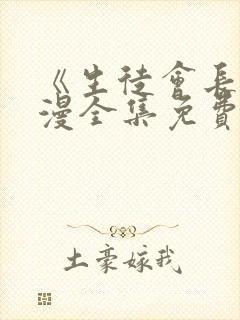 《生徒會長
漫全集免費
土豪嫁我